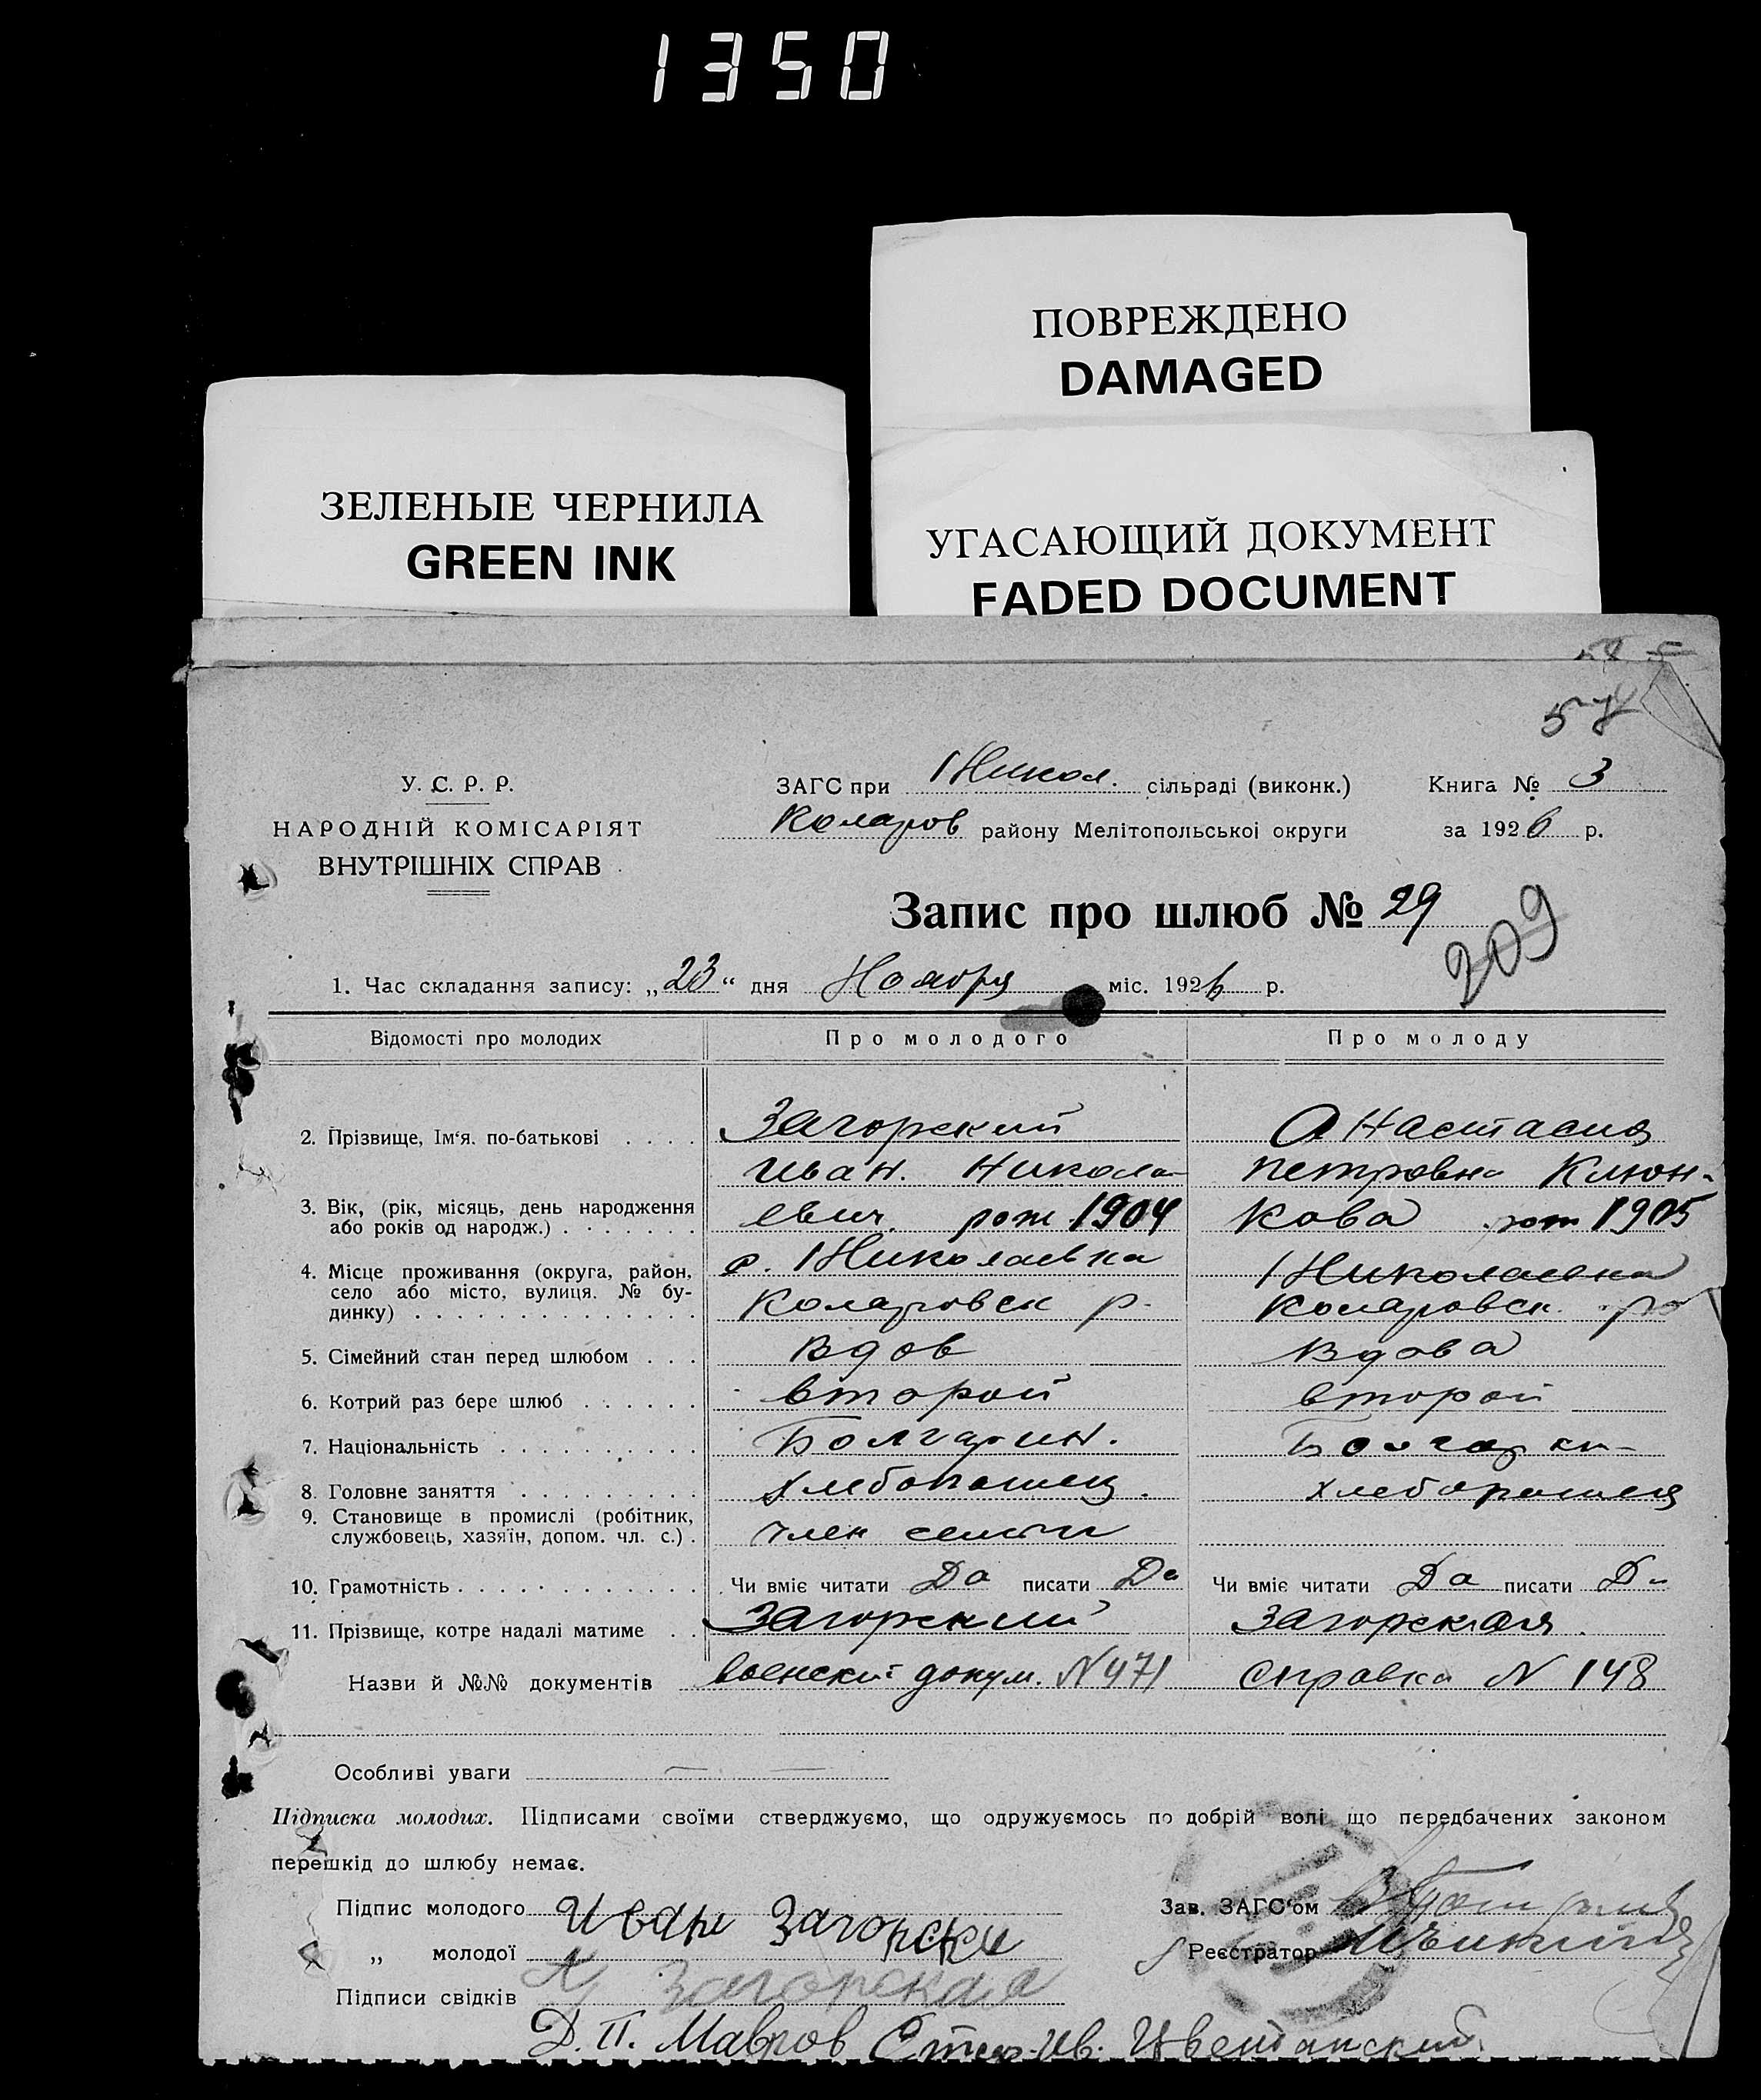 1350
ПОВРЕЖДЕНО
DAMAGED
ЗЕЛЕНЫЕ ЧЕРНИЛА
GREEN INK
УГАСАЮЩИЙ ДОКУМЕНТ
FADED DOCUMENT
58
57
У. С. Р. Р.
НАРОДНІЙ КОМІСАРІЯТ
ВНУТРІШНІХ СПРАВ
ЗАГС при Никол. сільраді (виконк.) Книга № 3
Коларов району Мелітопольської округи за 1926 р.
Запис про шлюб № 29
209
1. Час складання запису: „23“ дня Ноября міс. 1926 р.
Відомості про молодих Про молодого Про молоду
2. Прізвище, Ім‘я. по-батькові . . . . Загорский Анастасия
Иван. Никола- Петровна Клюн-
3. Вік, (рік, місяць, день народження
або років од народж.) . . . . . . . евич. рож 1904 кова рож 1905
4. Місце проживання (округа, район,
село або місто, вулиця. № бу-
динку) . . . . . . . . . . . . . .
с. Николаевка Николаевка
Коларовск р. Коларовск. р
5. Сімейний стан перед шлюбом . . . Вдов Вдова
6. Котрий раз бере шлюб . . . . . . второй второй
7. Національність . . . . . . . . . . Болгарин. Болгарк
8. Головне заняття . . . . . . . . . Хлебопашец. хлебопашец
9. Становище в промислі (робітник,
службовець, хазяїн, допом. чл. с.) . член семьи
10. Грамотність . . . . . . . . . . . . Чи вміє читати Да писати Да Чи вміє читати Да писати Да
11. Прізвище, котре надалі матиме . . Загорский Загорская.
Назви й №№ документів воинский докум. N 471 Справка N 148
Особливі уваги
Підписка молодих. Підписами своїми стверджуємо, що одружуємось по добрій волі що передбачених законом
перешкід до шлюбу немає.
Підпис молодого Иван Загорски Зав. ЗАГС‘ом
„ молодої Реєстратор
Загорская
Підписи свідків
Д. П. Мавров Ив. Цветанский